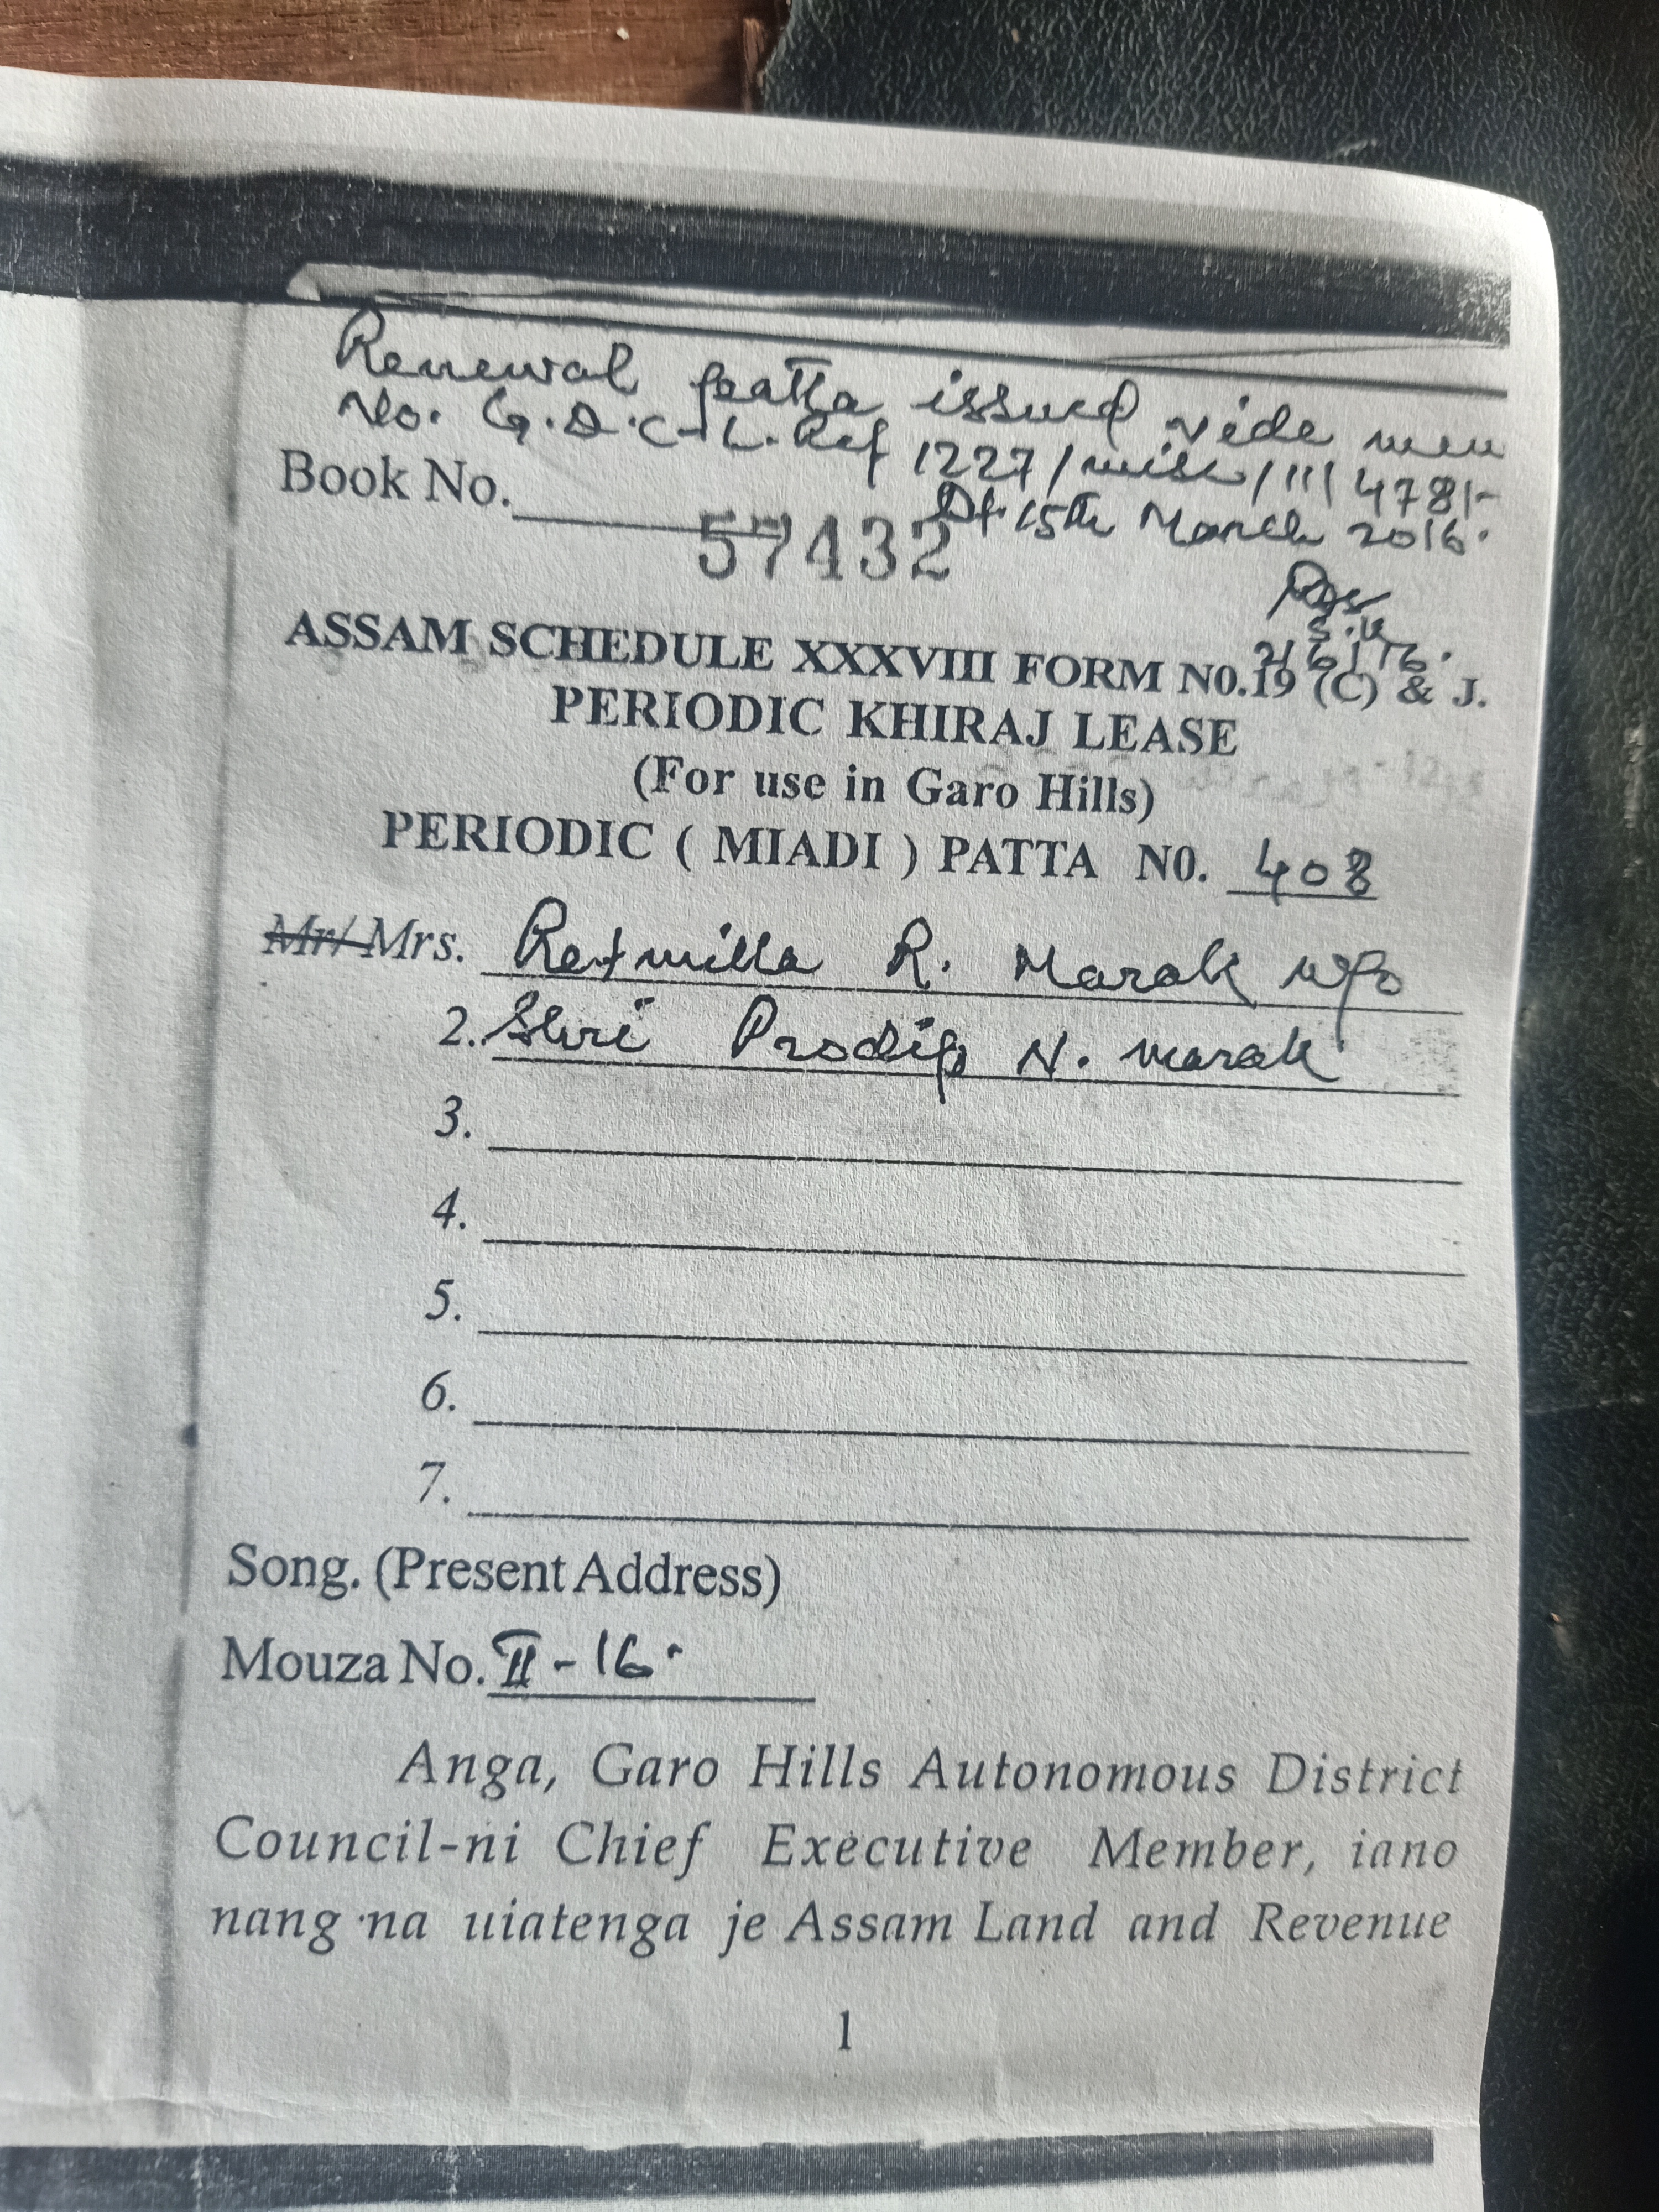 Renewal patta issued vide mem
No. G.D.C-L.Ref 1227/misc/III/4781-
Dt 15th March 2016.
Book No.
57432
S.K
2/6/16.
ASSAM SCHEDULE XXXVIII FORM N0.19 (C) & J.
PERIODIC KHIRAJ LEASE
(For use in Garo Hills)
PERIODIC ( MIADI ) PATTA N0. 408
Mr/ Mrs. Retmilla R. Marak w/o
2. Shri Prodip N. marak
3.
4.
5.
6.
7.
Song. (Present Address)
Mouza No. II-16.
Anga, Garo Hills Autonomous District
Council-ni Chief Executive Member, iano
nang·na uiatenga je Assam Land and Revenue
1